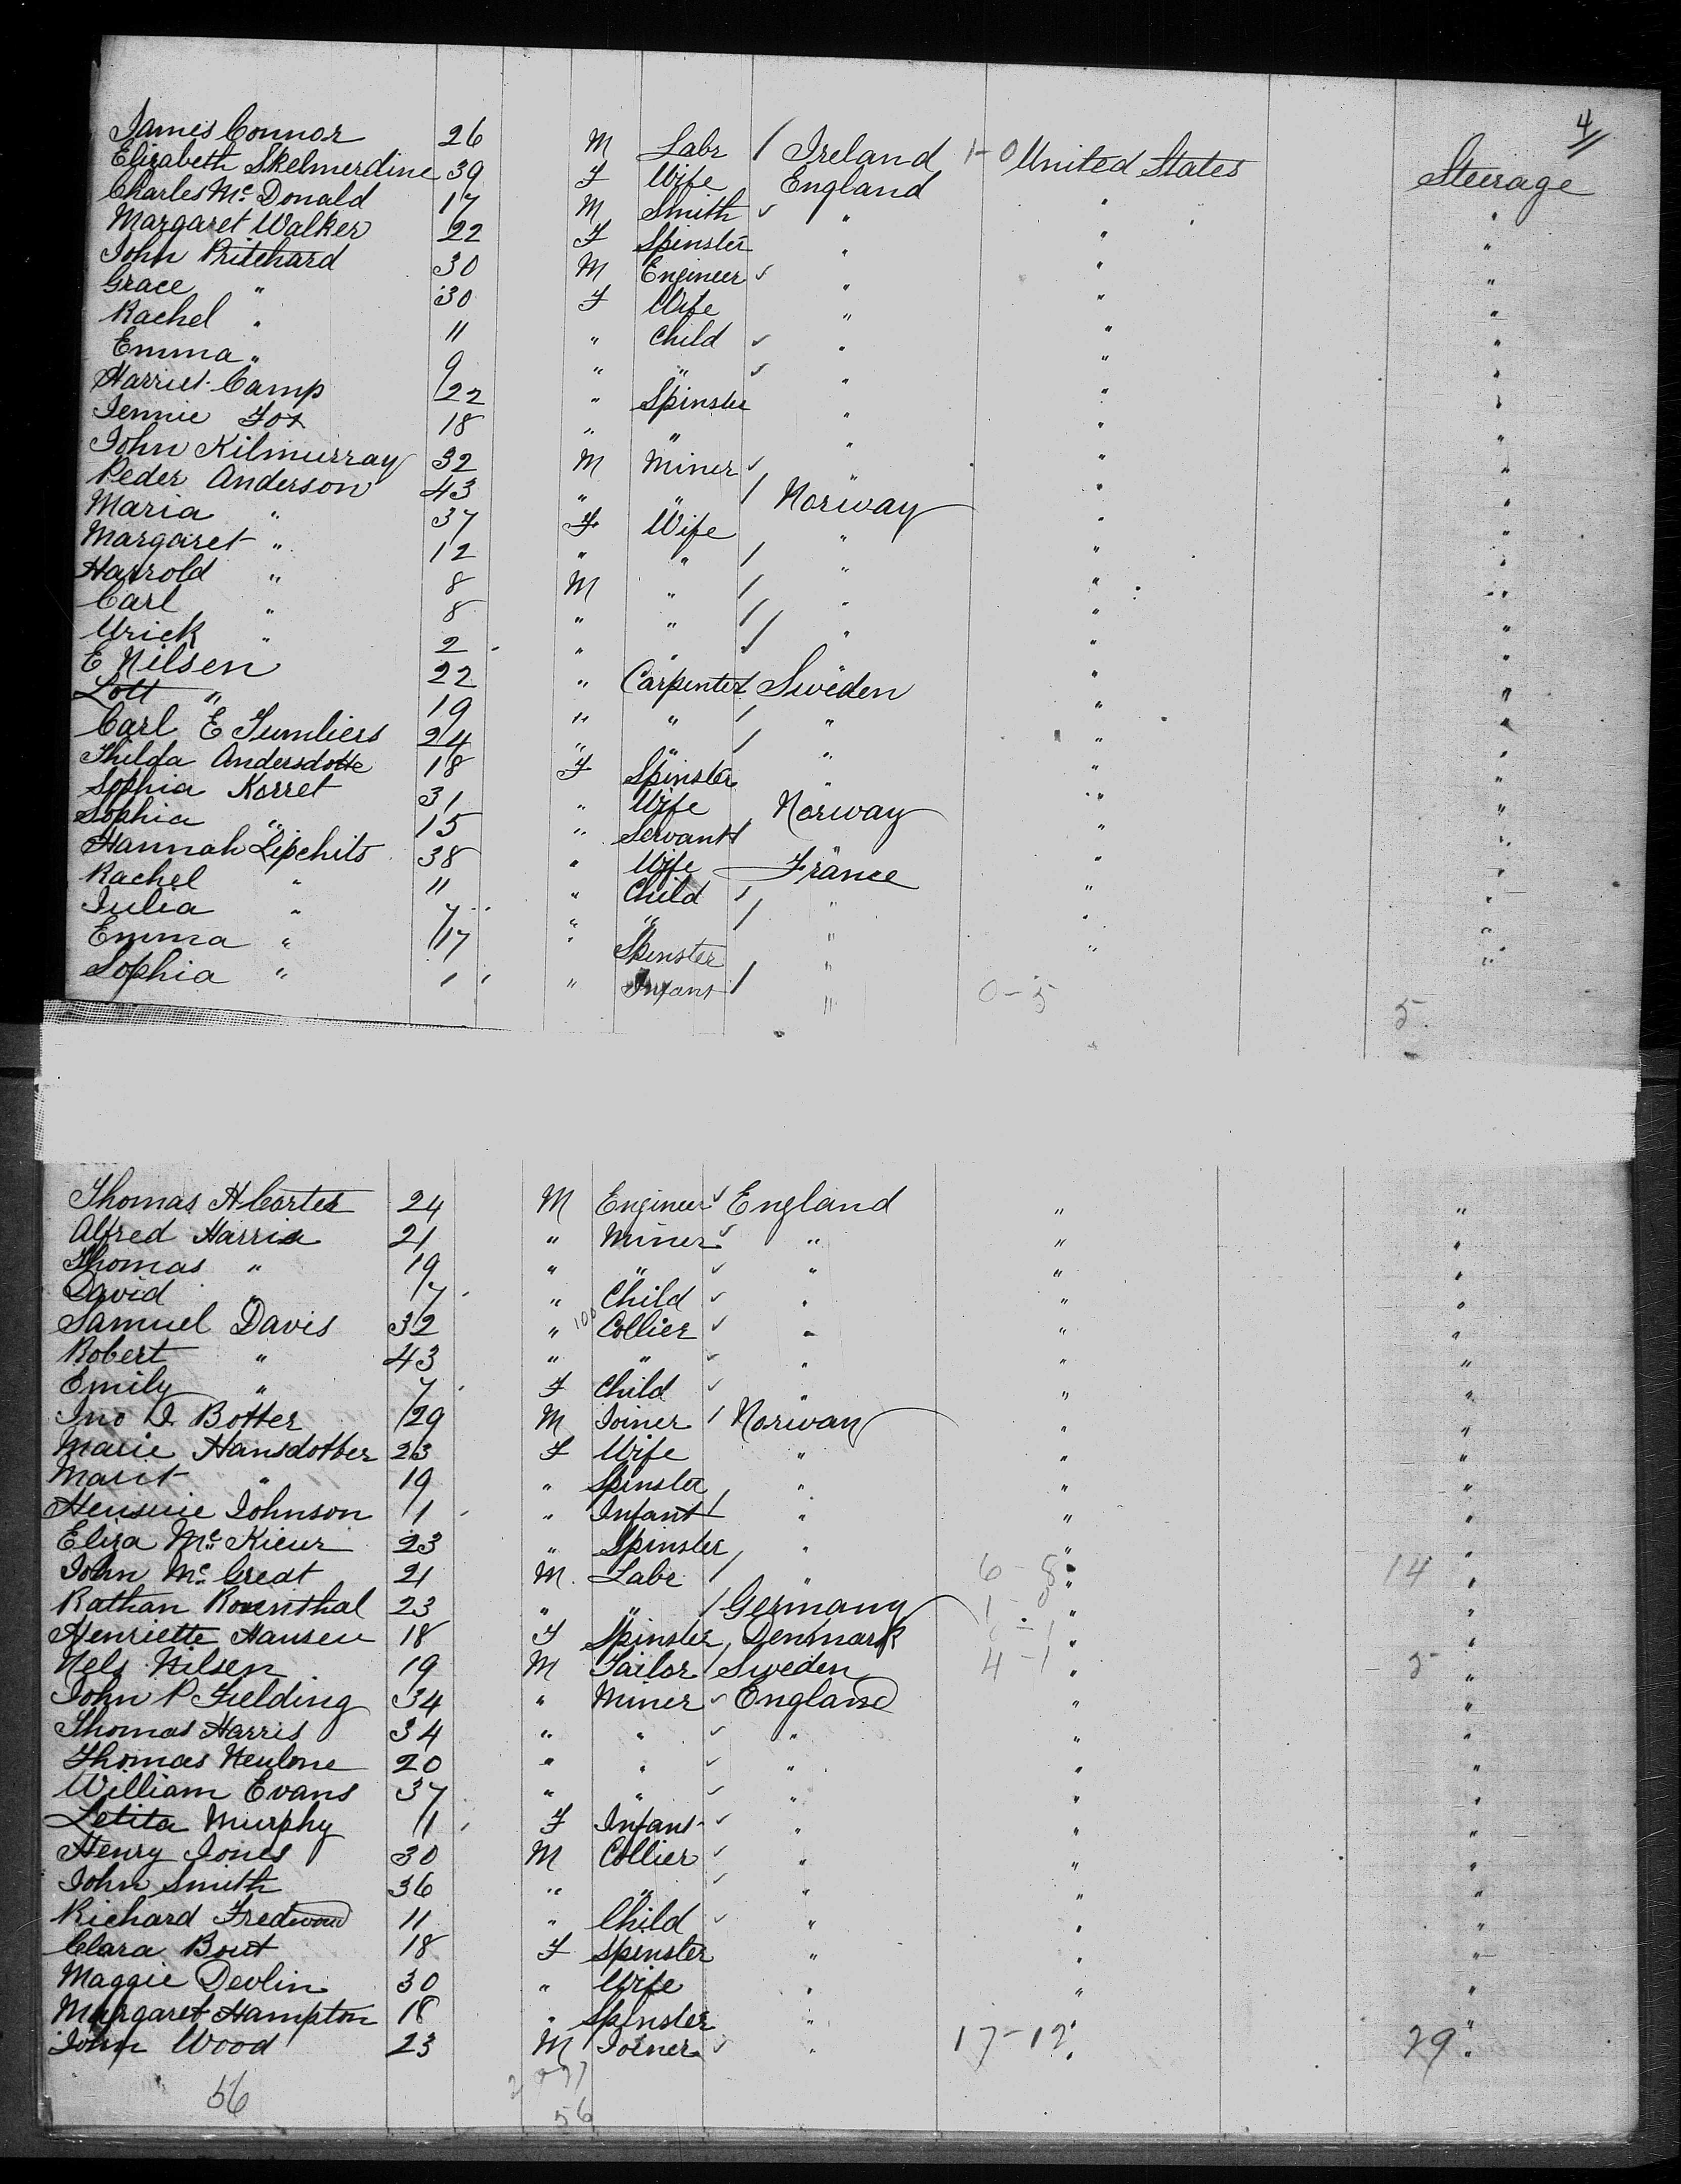 4
James Connor 26 M Labr / Ireland 1-0 United States Steerage
Elizabeth Skelmerdine 39 F Wife England " "
Charles Mc Donald 17 M Smith ✓ " " "
Margaret Walker 22 F Spinster " " "
John Pritchard 30 M Engineer ✓ " " "
Grace " 30 F Wife " " "
Rachel " 11 " Child ✓ " " "
Emma " 9 " " ✓ " " "
Harriet Camp 22 " Spinster " " "
Jennie Fox 18 " " " " "
John Kilmurray 32 M Miner ✓ " " "
Peder Anderson 43 " " / Norway " "
Maria " 37 F Wife " " "
Margaret " 12 " " / " " "
Harrold " 8 M " / " " "
Carl " 8 " " / " " "
Urick " 2 " " / " " "
E Nilsen 22 " Carpenter / Sweden " "
Lott " 19 " " / " " "
Carl E 24 " " / " " "
Thilda Andersdotte 18 F Spinster " " "
Sophia Korret 31 " Wife Norway " "
Sophia " 15 " Servant / " " "
Hannah Lipchits 38 " Wife France " "
Rachel " 11 " Child / " " "
Julia " 7 " " / " " "
Emma " 17 " Spinster " " "
Sophia " 1 " Infant / " 0-5 5
Thomas H Carter 24 M Engineer ✓ England " "
Alfred Harris 21 " Miner ✓ " " "
Thomas " 19 " " ✓ " " "
David " 7 " Child ✓ " " "
Samuel Davis 32 " 100 Collier ✓ " " "
Robert " 43 " " ✓ " " "
Emily " 7 F Child ✓ " " "
Jno D Botter 29 M Joiner / Norway " "
Marie Hansdotter 23 F Wife " " "
Marit " 19 " Spinster " " "
Johnson 11 " Infant / " " "
Eliza Mc 23 " Spinster " " "
John Mc Creat 21 M Labr / " 6-8 " 14 "
Rathan Rosenthal 23 " " / Germany " "
Henriette Hansen 18 F Spinster Denmark " "
Nels Nilsen 19 M Tailor / Sweden 4-1 " 5 "
John P Fielding 34 " Miner ✓ England " "
Thomas Harris 34 " " ✓ " " "
Thomas 20 " " ✓ " " "
William Evans 37 " " ✓ " " "
Letita Murphy 11 F Infant ✓ " " "
Henry Jones 30 M Collier ✓ " " "
John Smith 36 " " ✓ " " "
Richard Fredwood 11 " Child ✓ " " "
Clara Bout 18 F Spinster " " "
Maggie Devlin 30 " Wife " " "
Margaret Hampton 18 " Spinster " " "
John Wood 23 M Joiner ✓ " 17-12 " 29 "
56
56